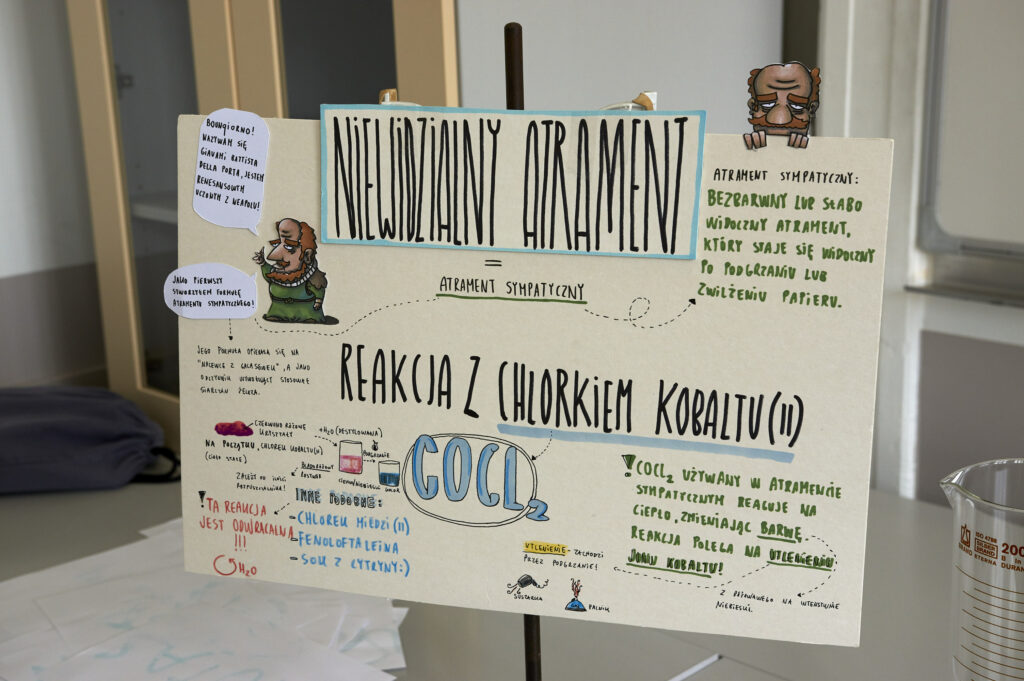 NIEWIDZIALNY ATRAMENT
=
ATRAMENT SYMPATYCZNY
BOUNGIORNO!
NAZYWAM SIĘ
GIAVAMI BATTISTA
DELLA PORTA, JESTEM
RENESANSOWYM
UCZONYM Z NEAPOLU!
JAKO PIERWSZY
STWORZYŁEM FORMUŁĘ
ATRAMENTU SYMPATYCZNEGO!
JEGO FORMUŁA OPIERAŁA SIĘ NA
"NALEWCE Z GALASÓWEK", A JAKO
ODCZYNNIK UTRWALAJĄCY STOSOWAŁ
SIARCZAN ŻELAZA.
ATRAMENT SYMPATYCZNY:
BEZBARWNY LUB SŁABO
WIDOCZNY ATRAMENT,
KTÓRY STAJE SIĘ WIDOCZNY
PO PODGRZANIU LUB
ZWILŻENIU PAPIERU.
REAKCJA Z CHLORKIEM KOBALTU(II)
CZERWONO RÓŻOWE
KRYSZTAŁY
NA POCZĄTKU, CHLOREK KOBALTU(II)
(CIAŁO STAŁE)
+H₂O (DESTYLOWANA)
PODGRZANIE
BLADORÓŻOWY
ROZTWÓR
CIEMNONIEBIESKI
ZALEŻY OD ILOŚCI
ROZPUSZCZALNIKA!
COCL₂
! TA REAKCJA
JEST ODWRACALNA
!!!
H₂O
INNE PODOBNE:
- CHLOREK MIEDZI (II)
- FENOLOFTALEINA
- SOK Z CYTRYNY:)
UTLENIENIE - ZACHODZI
PRZEZ PODGRZANIE!
SUSZARKA
PALNIK
! COCL₂ UŻYWANY W ATRAMENCIE
SYMPATYCZNYM REAGUJE NA
CIEPŁO, ZMIENIAJĄC BARWĘ.
REAKCJA POLEGA NA UTLENIENIU
JONU KOBALTU!
Z RÓŻOWAWEGO NA INTENSYWNIE
NIEBIESKI.
ISO 4788
200